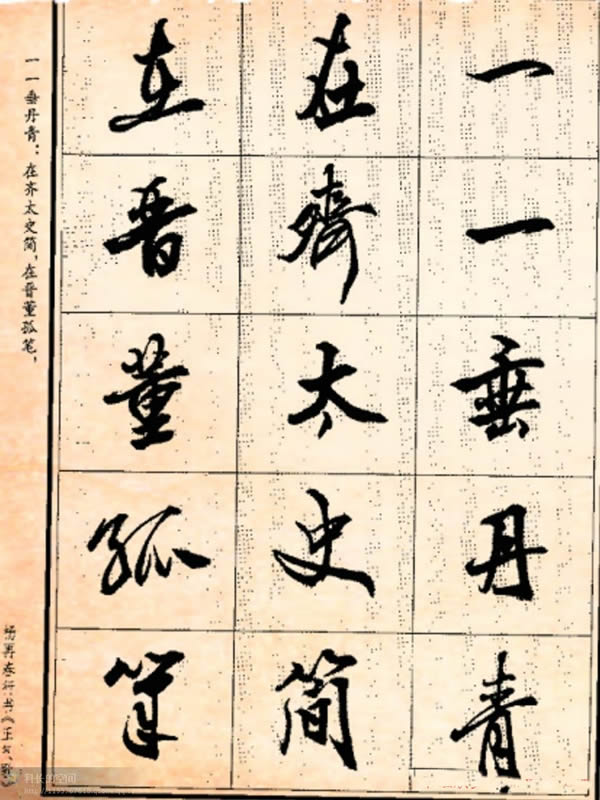 一一垂丹青
在齊太史簡
在晋董孤筆
一一垂丹青：在齐太史简，在晋董孤笔，
杨再春行书《正气歌》
科长的空间